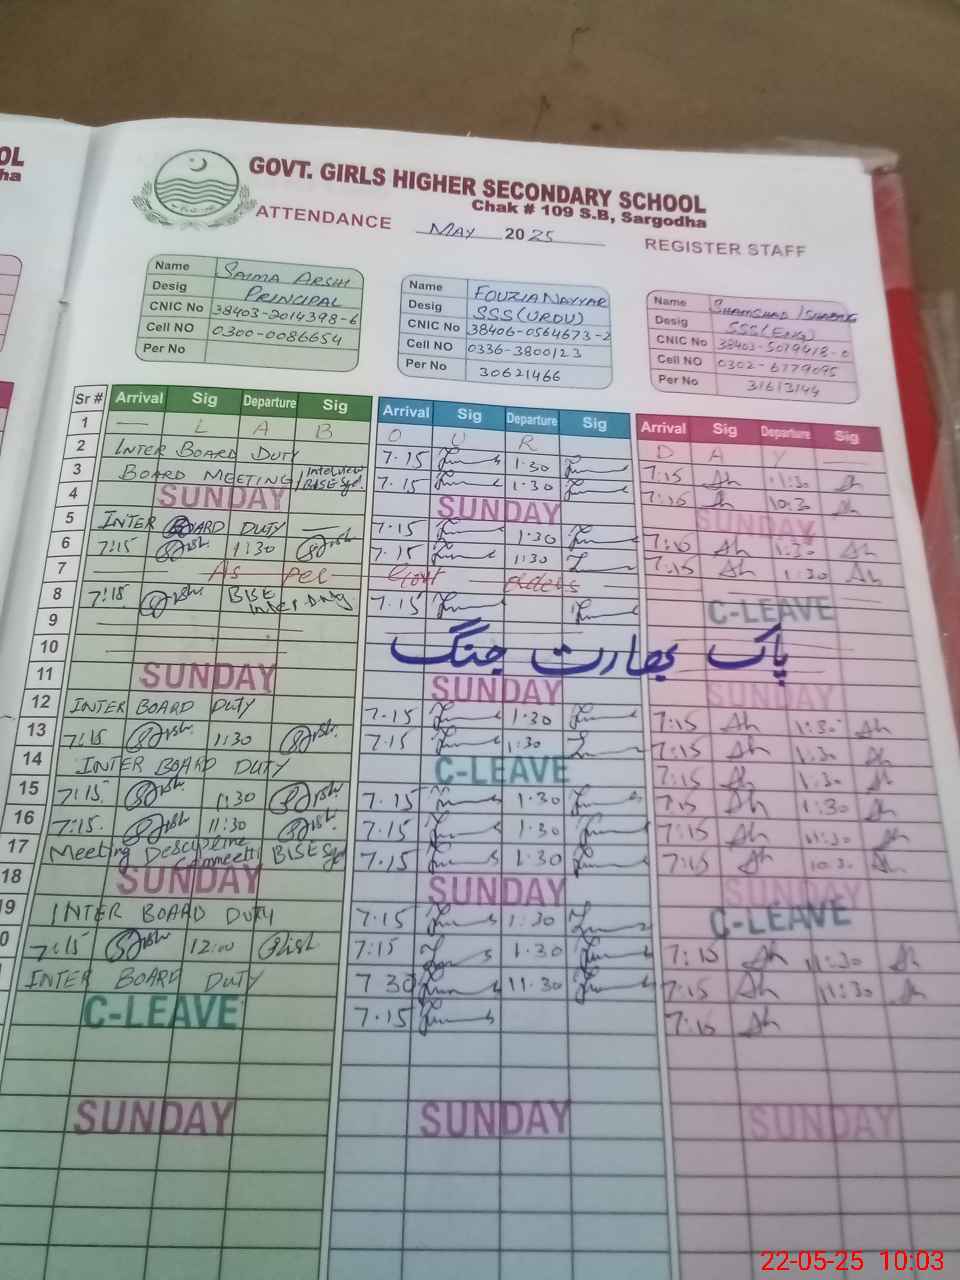 OL
ha
GOVT. GIRLS HIGHER SECONDARY SCHOOL
Chak # 109 S.B, Sargodha
ATTENDANCE MAY 2025 REGISTER STAFF
Name SAIMA ARSHI
Desig PRINCIPAL
CNIC No 38403-2014398-6
Cell NO 0300-0086654
Per No
Name FOUZIA NAYYAR
Desig SSS(URDU)
CNIC No 38406-0564673-2
Cell NO 0336-3800123
Per No 30621466
Name SHAMSHAD
Desig SSS(ENG)
CNIC No 38403-5079418-0
Cell NO 0302-6779095
Per No 31613144
Sr # Arrival Sig Departure Sig Arrival Sig Departure Sig Arrival Sig Departure Sig
1 — L A B O U R D A Y —
2 INTER BOARD DUTY 7.15 1.30 7:15 1:30
3 BOARD MEETING / Interview BISE Sgd. 7.15 1.30 7:15 10:30
4 SUNDAY SUNDAY SUNDAY
5 INTER BOARD DUTY — 7.15 1.30 7:15 1:30
6 7:15 1:30 7.15 1:30 7:15 1:30
7 As per Govt orders
8 7:15 BISE Inter Duty 7.15 C-LEAVE
9
10 پاک بھارت جنگ
11 SUNDAY SUNDAY SUNDAY
12 INTER BOARD DUTY 7.15 1.30 7:15 1:30
13 7:15 1:30 7.15 1:30 7:15 1:30
14 INTER BOARD DUTY C-LEAVE 7:15 1:30
15 7:15 1:30 7.15 1.30 7:15 1:30
16 7:15 11:30 7.15 1.30 7:15 11:30
17 Meeting Descipline Committi BISE Sgd 7.15 1.30 7:15 10:30
18 SUNDAY SUNDAY SUNDAY
19 INTER BOARD DUTY 7.15 1:30 C-LEAVE
0 7:15 12:00 7:15 1.30 7:15 11:30
INTER BOARD DUTY 7 30 11.30 7:15 11:30
C-LEAVE 7.15 7:15
SUNDAY SUNDAY SUNDAY
22-05-25 10:03